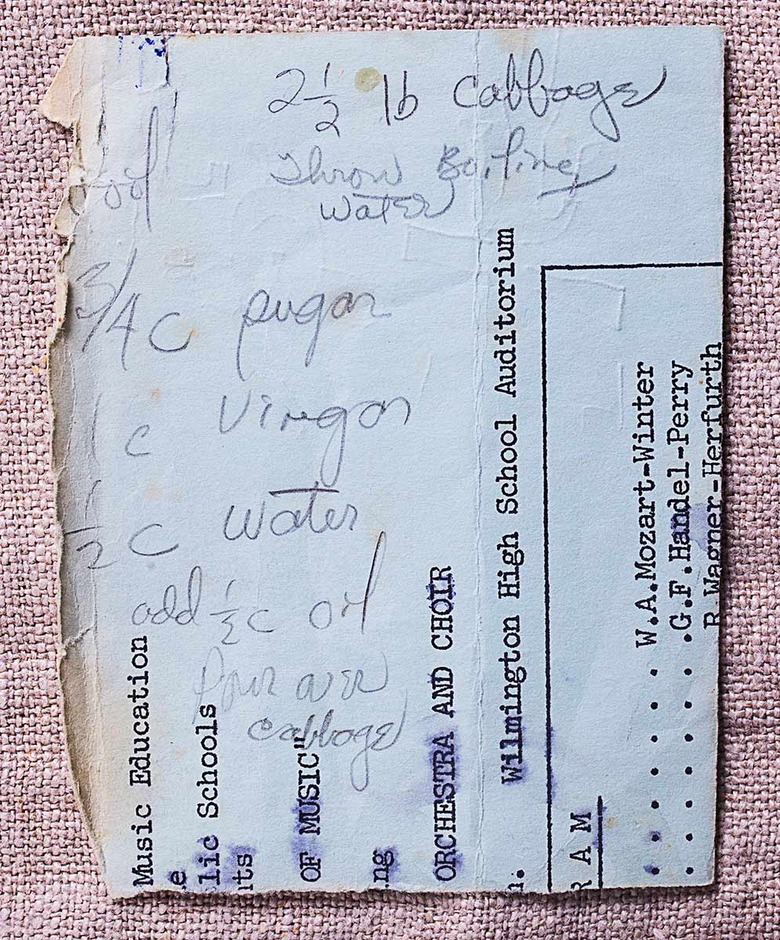 2 1/2 lb cabbage
Throw Boiling
water
3/4 c sugar
1 c Vinegar
1/2 c water
add 1/2 c oil
Pour over
cabbage
Music Education
e
lic Schools
its
OF MUSIC"
ng
ORCHESTRA AND CHOIR
Wilmington High School Auditorium
R A M
. . . . . . . W.A.Mozart-Winter
. . . . . . . G.F.Handel-Perry
R.Wagner-Herfurth